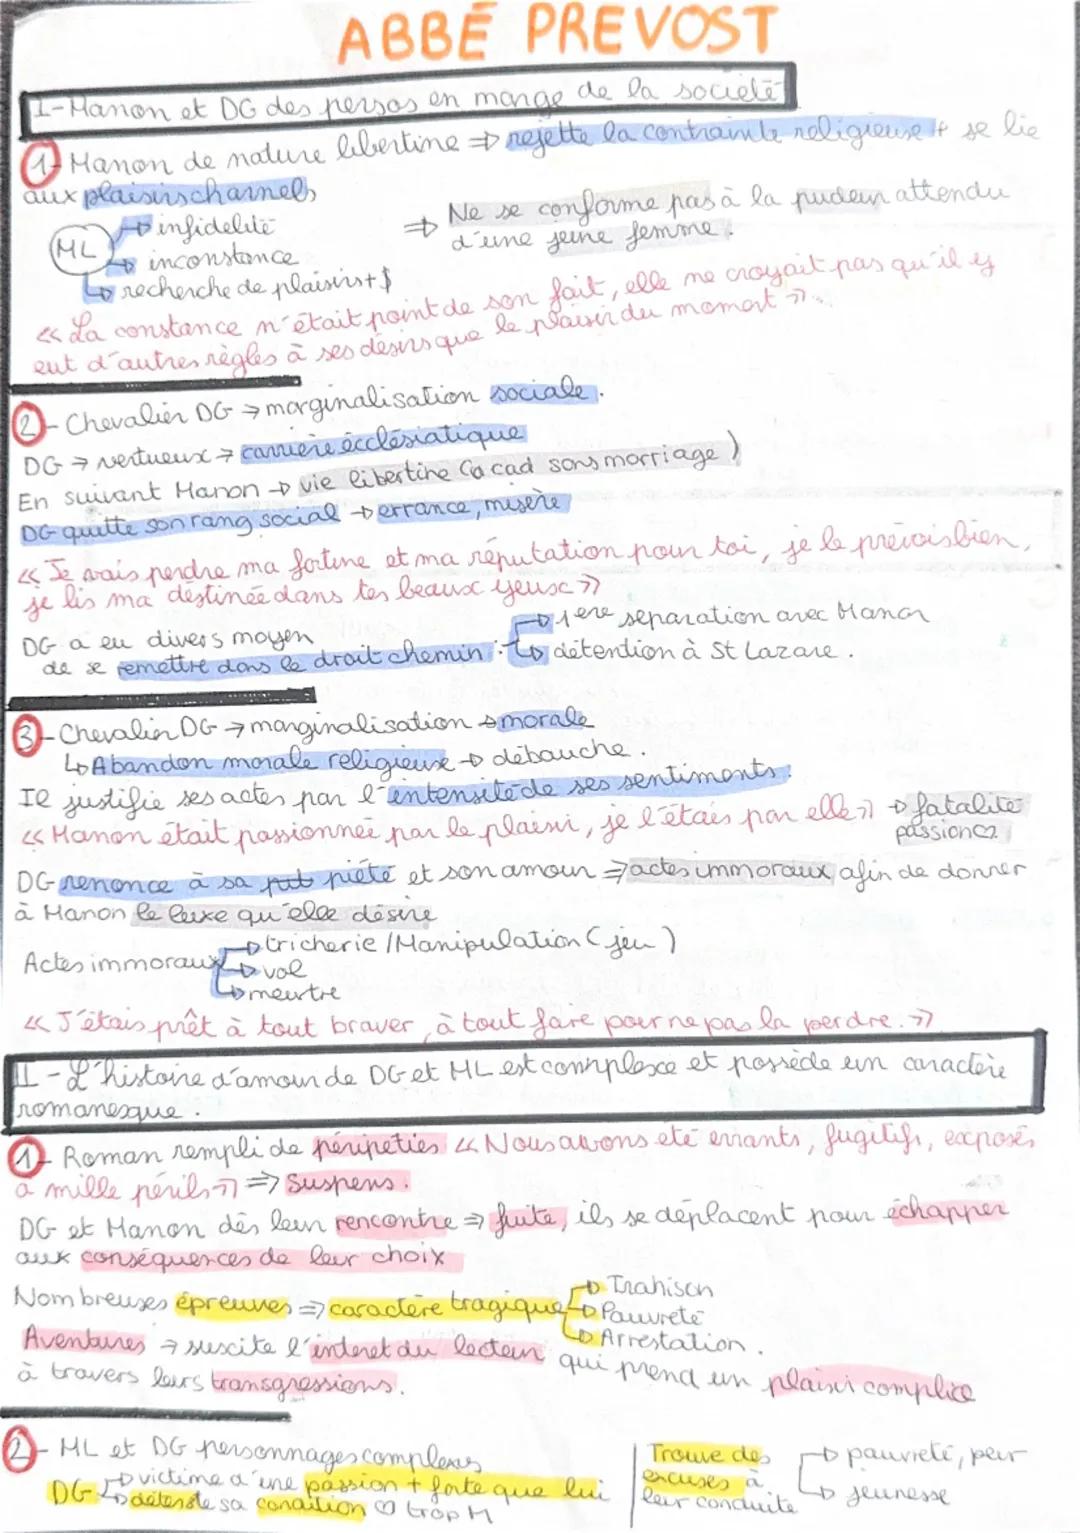 ABBÉ PREVOST
I-Manon et DG des persos en marge de la société
1- Manon de nature libertine ⇒ rejette la contrainte religieuse + se lie
aux plaisirs charnels
ML → infidelité
→ inconstance
→ recherche de plaisirs + $
⇒ Ne se conforme pas à la pudeur attendu
d'une jeune femme.
« La constance n'était point de son fait, elle ne croyait pas qu'il y
eut d'autres règles à ses désirs que le plaisir du moment »
2- Chevalier DG → marginalisation sociale.
DG → vertueux → carrière écclésiatique
En suivant Manon → vie libertine (a cad sans marriage)
DG quitte son rang social → errance, misère
« Je vais perdre ma fortune et ma réputation pour toi, je le prévois bien,
je lis ma destinée dans tes beaux yeux »
DG a eu divers moyen
de se remettre dans le droit chemin :
→ 1ere séparation avec Manon
→ détention à St Lazare.
3- Chevalier DG → marginalisation → morale
↳ Abandon morale religieuse → débauche.
Il justifie ses actes par l'intensité de ses sentiments.
« Manon était passionnée par le plaisir, je l'étais par elle » → fatalité
passion
DG renonce à sa piété et son amour ⇒ actes immoraux afin de donner
à Manon le luxe qu'elle désire
Actes immoraux → tricherie / Manipulation (jeu)
→ vol
→ meurtre
« J'étais prêt à tout braver, à tout faire pour ne pas la perdre. »
II - L'histoire d'amour de DG et ML est complexe et possède un caractère
romanesque.
1- Roman rempli de péripeties « Nous avons été errants, fugitifs, exposés
a mille périls » ⇒ Suspens.
DG et Manon dès leur rencontre ⇒ fuite, ils se déplacent pour échapper
aux conséquences de leur choix
Nombreuses épreuves ⇒ caractère tragique → Trahison
→ Pauvreté
→ Arrestation.
Aventures → suscite l'interet du lecteur qui prend un plaisir complice
à travers leurs transgressions.
2- ML et DG personnages complexes
DG → victime d'une passion + forte que lui
→ déteste sa condition ♡ trop M
Trouve des
excuses à
leur conduite
→ pauvreté, peur
→ jeunesse